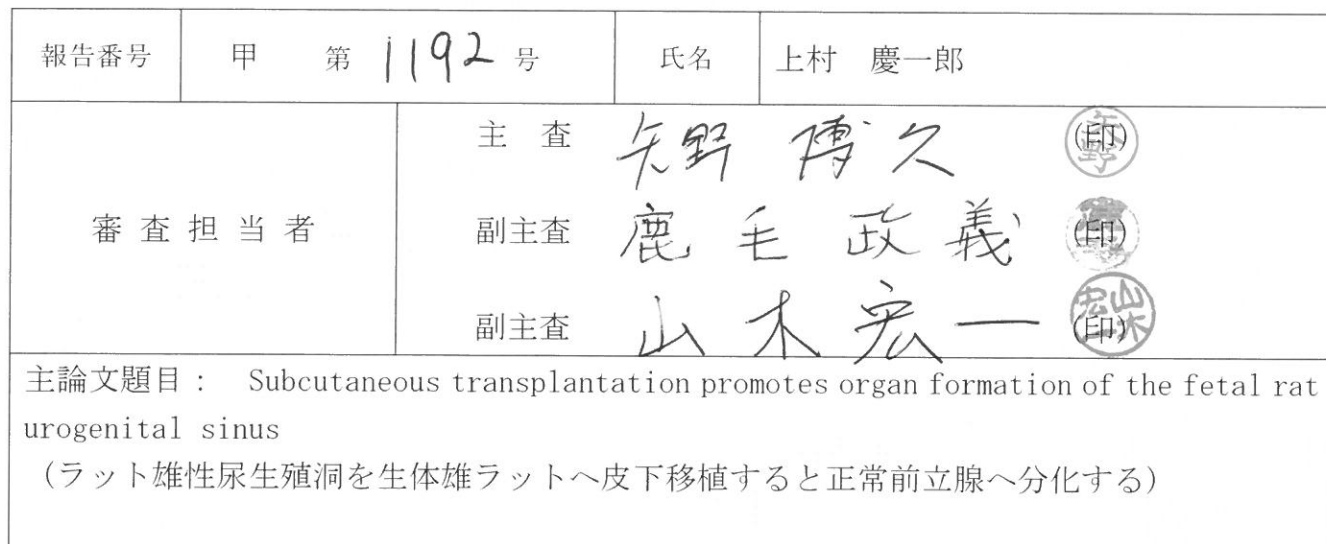 報告番号 甲 第 1192 号 氏名 上村 慶一郎
審査担当者
主 査 矢野 博久 (印) 矢野
副主査 鹿毛 政義 (印)
副主査 山木 宏一 (印) 山木宏一
主論文題目: Subcutaneous transplantation promotes organ formation of the fetal rat
urogenital sinus
(ラット雄性尿生殖洞を生体雄ラットへ皮下移植すると正常前立腺へ分化する)